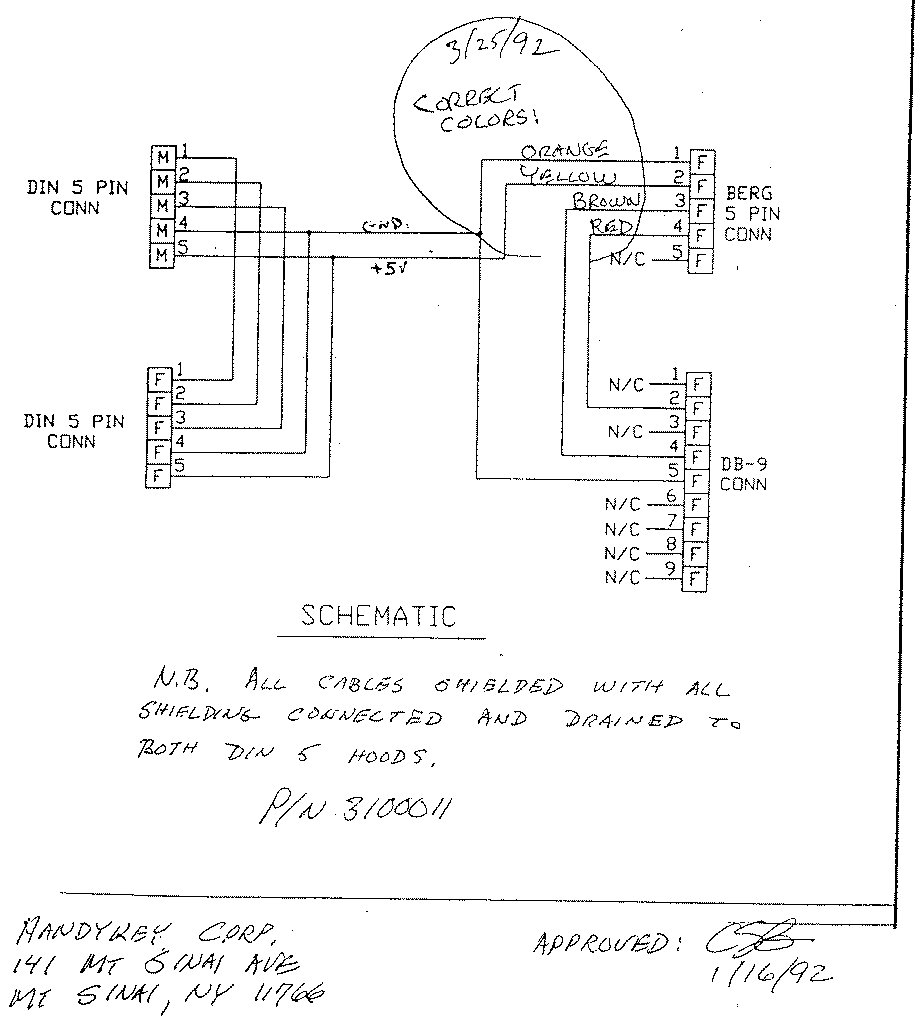 3/25/92
CORRECT
COLORS:
DIN 5 PIN
CONN
M 1
M 2
M 3
M 4
M 5
GND.
+5V
ORANGE 1 F
YELLOW 2 F
BROWN 3 F
RED 4 F
N/C 5 F
BERG
5 PIN
CONN
DIN 5 PIN
CONN
F 1
F 2
F 3
F 4
F 5
N/C 1 F
2 F
N/C 3 F
4 F
5 F
N/C 6 F
N/C 7 F
N/C 8 F
N/C 9 F
DB-9
CONN
SCHEMATIC
N.B. ALL CABLES SHIELDED WITH ALL
SHIELDING CONNECTED AND DRAINED TO
BOTH DIN 5 HOODS.
P/N 3100011
HANDYKEY CORP.
141 MT SINAI AVE
MT SINAI, NY 11766
APPROVED:
1/16/92